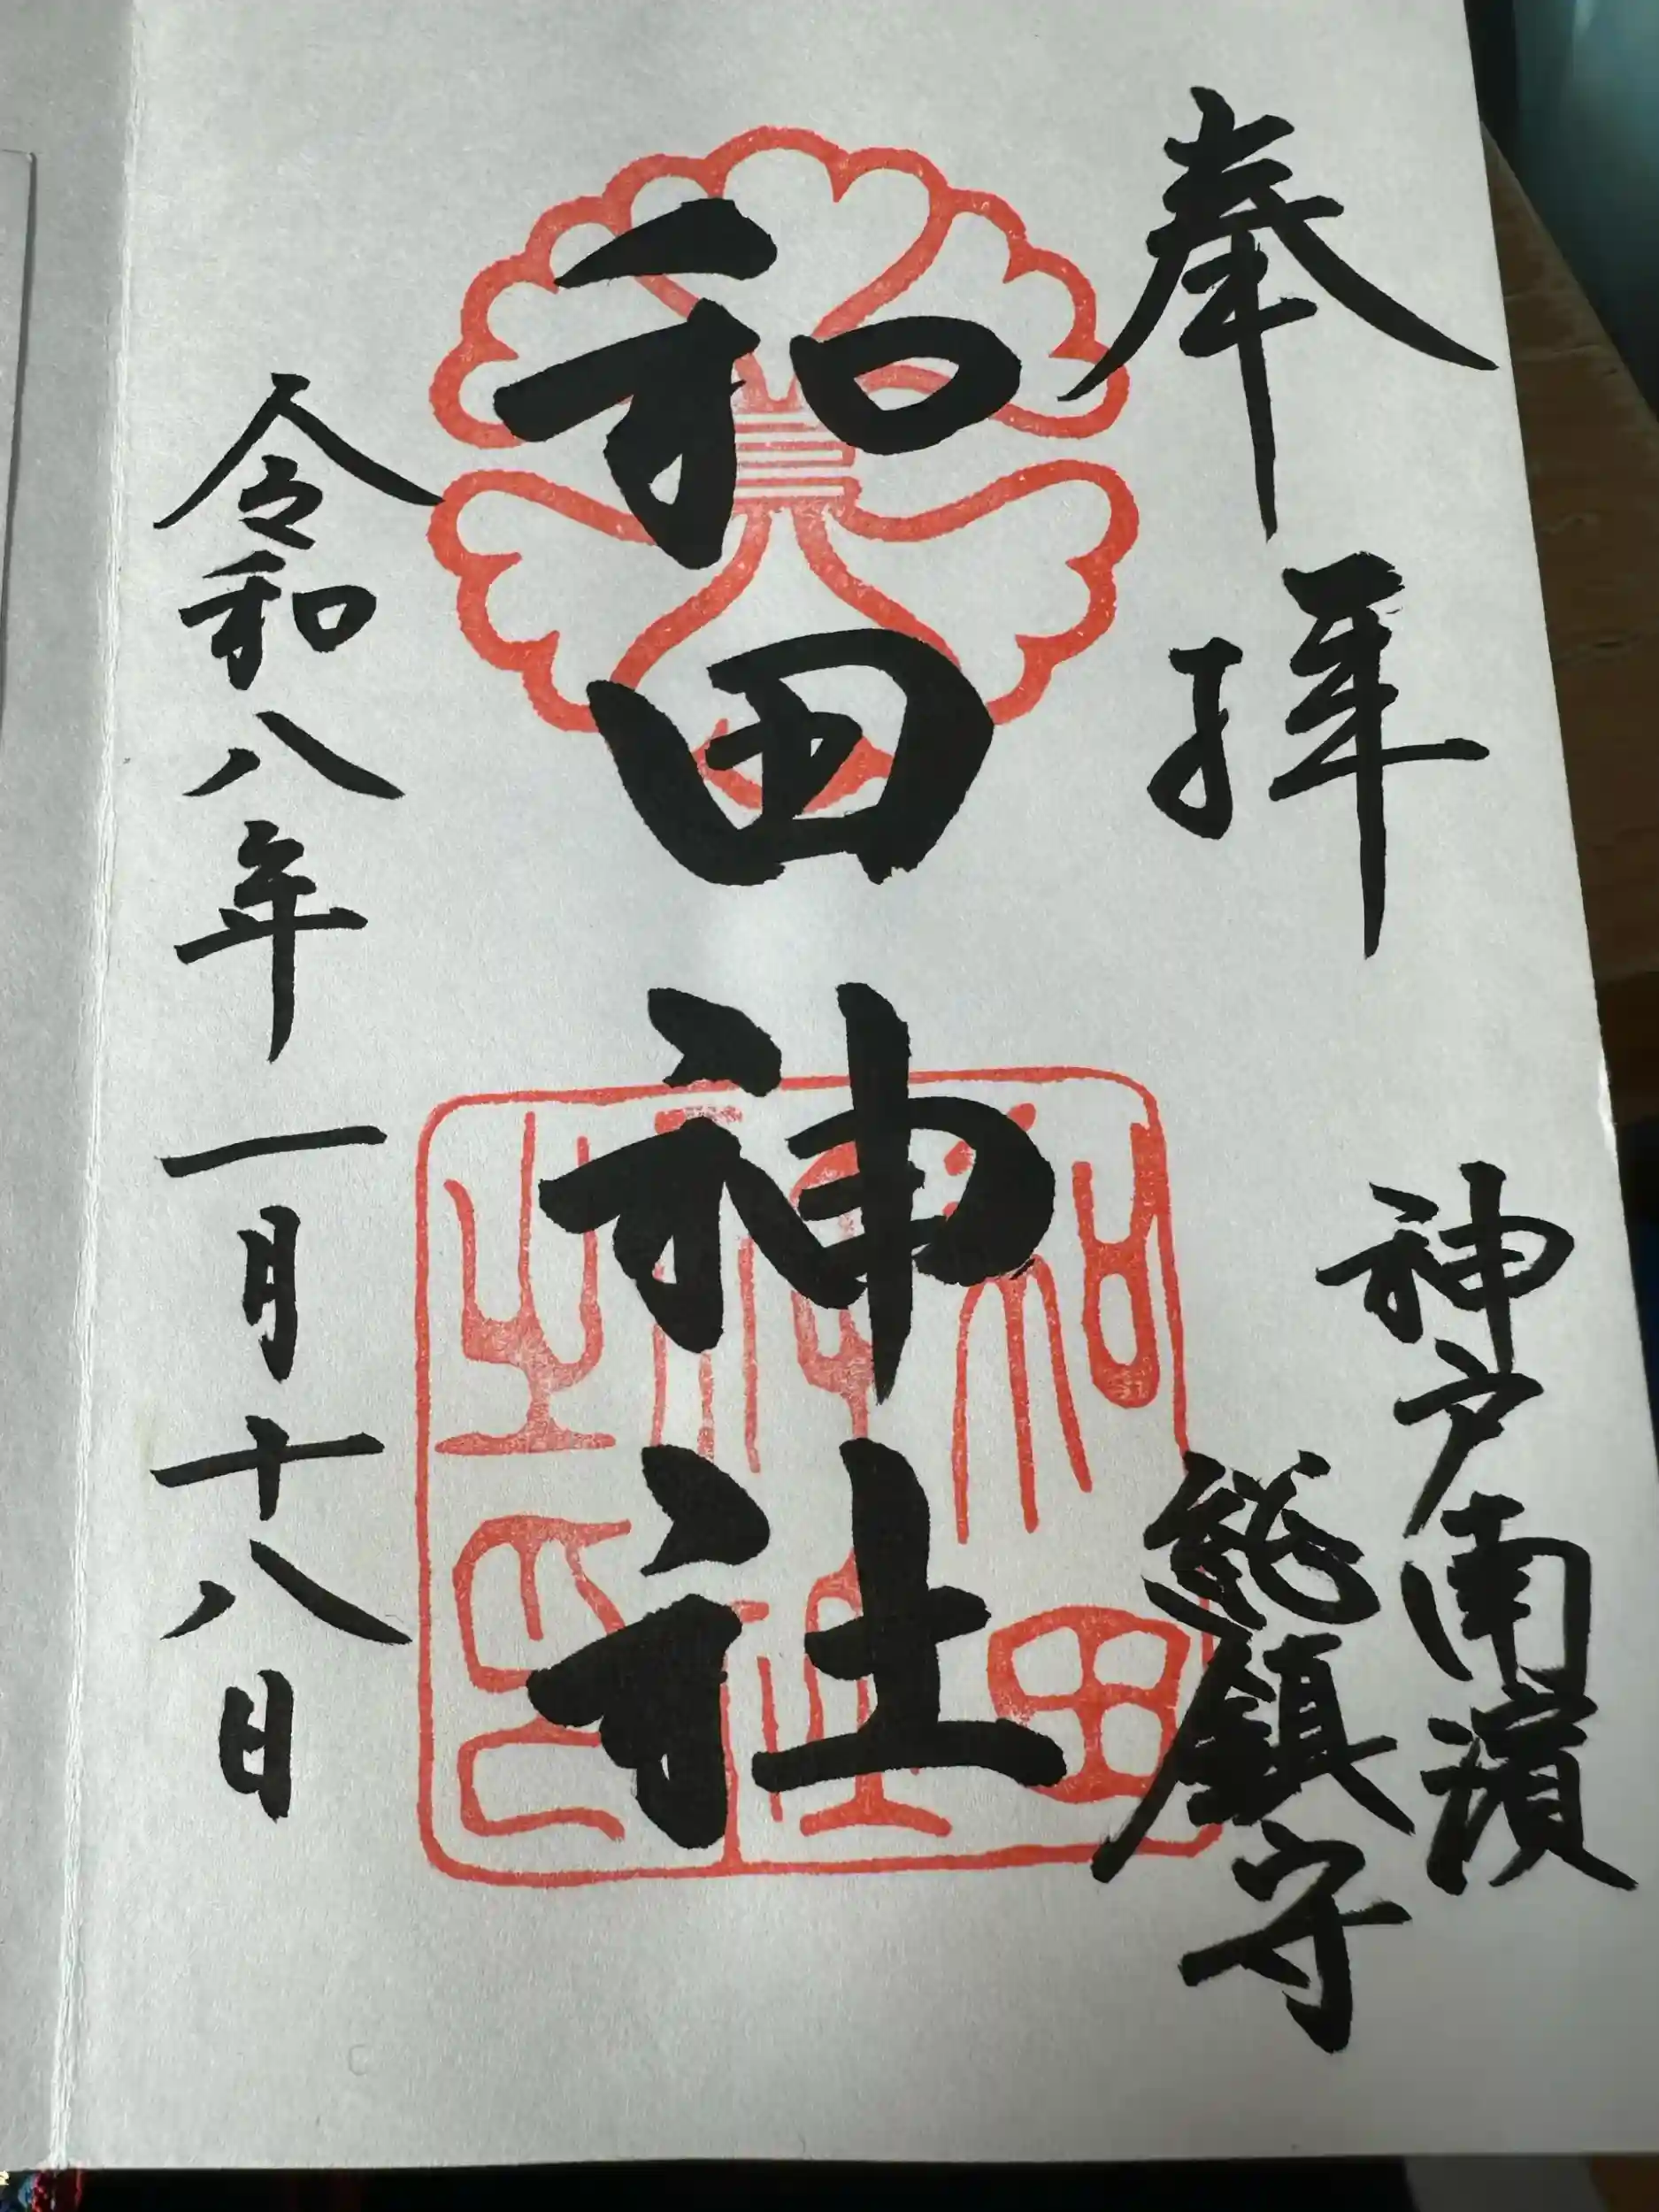 奉拝
神戸南濱
総鎮守
和田神社
和田
神社
之印
令和八年一月十八日